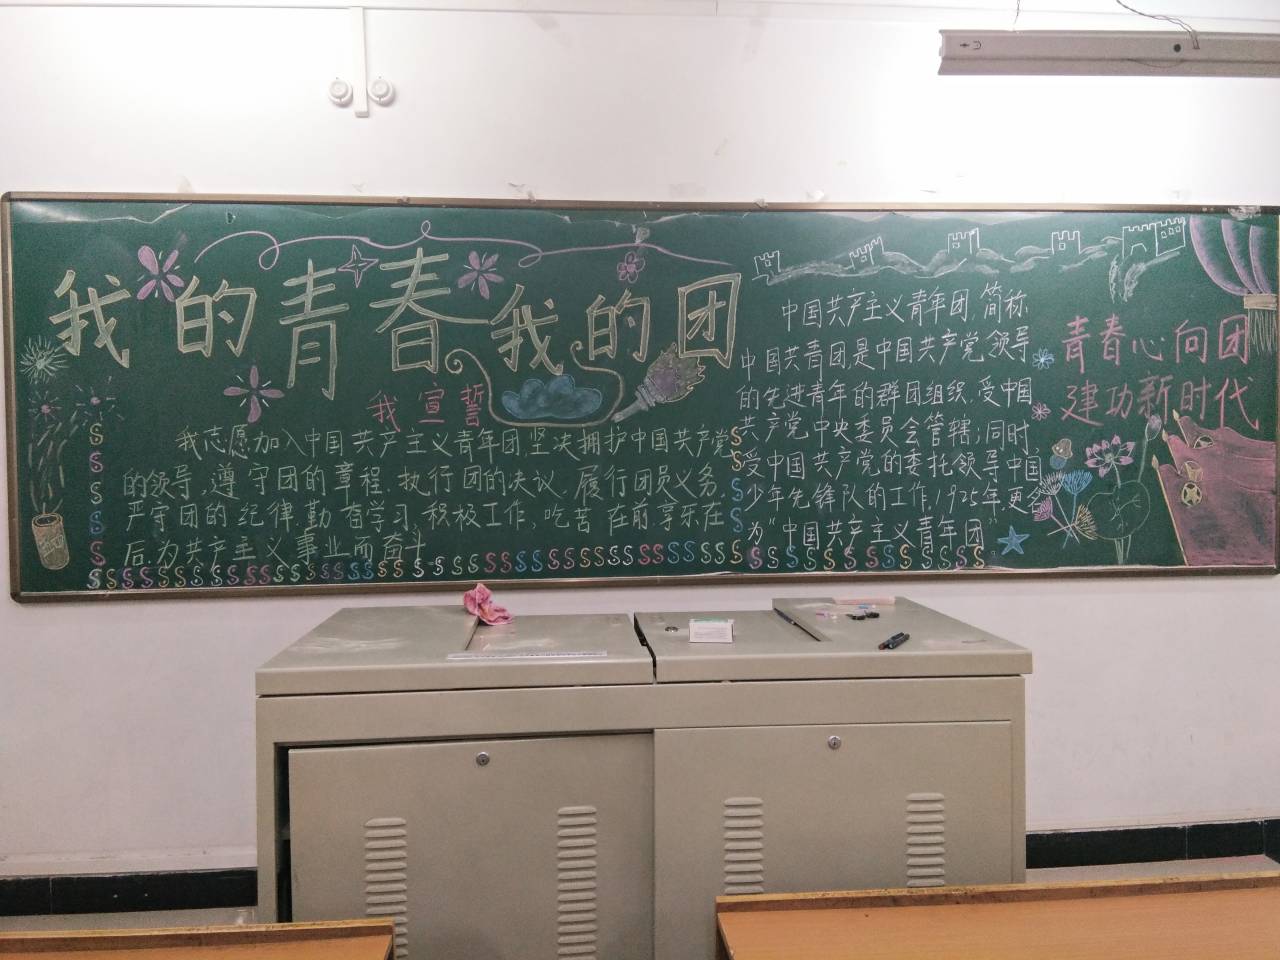 我的青春我的团
我宣誓
我志愿加入中国共产主义青年团,坚决拥护中国共产党
的领导,遵守团的章程,执行团的决议,履行团员义务,
严守团的纪律,勤奋学习,积极工作,吃苦在前,享乐在
后,为共产主义事业而奋斗.
中国共产主义青年团,简称
中国共青团,是中国共产党领导
的先进青年的群团组织,受中国
共产党中央委员会管辖;同时
受中国共产党的委托领导中国
少年先锋队的工作,1925年,更名
为"中国共产主义青年团"
青春心向团
建功新时代
SSSSSSSSSSSSSSSSSSSSSSSSSSSSSSSSSSSS